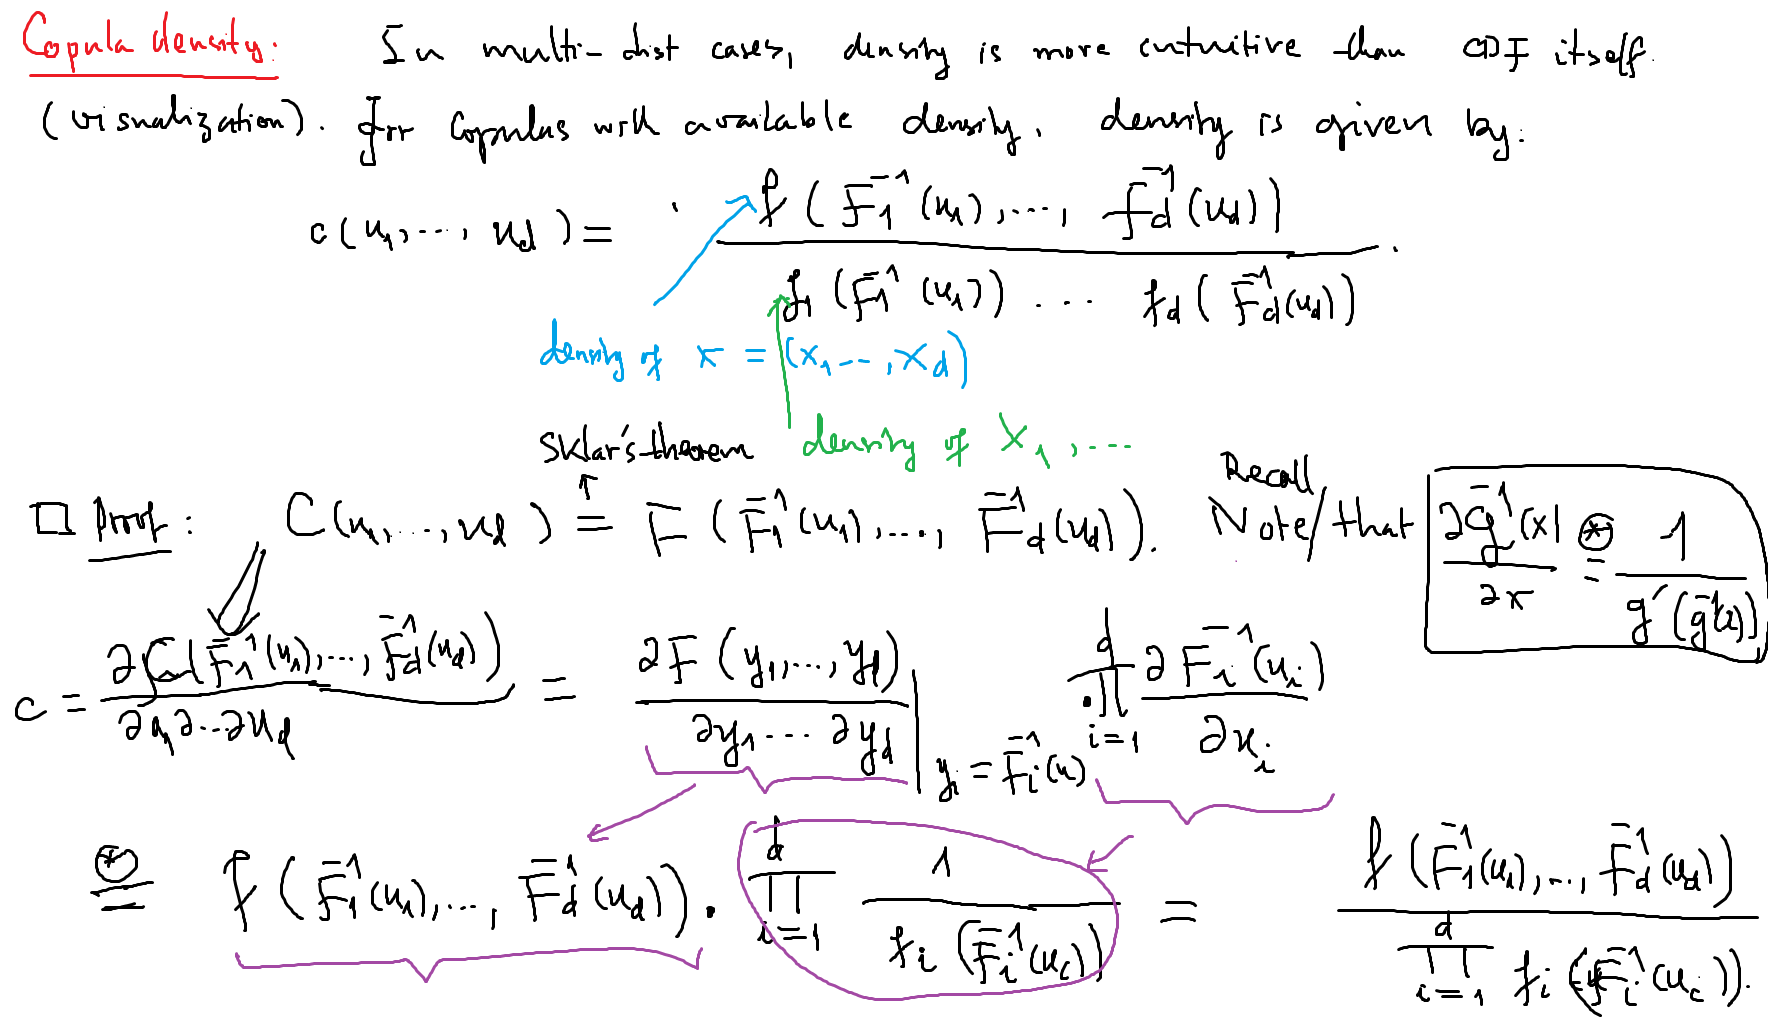 Copula density: In multi-dist cases, density is more intuitive than CDF itself.
(visualization). For Copulas with available density, density is given by:
c(u₁,..., u_d) = f(F₁⁻¹(u₁),..., F_d⁻¹(u_d)) / f₁(F₁⁻¹(u₁)) ... f_d(F_d⁻¹(u_d)).
density of x = (x₁..., x_d)
density of X₁,...
Sklar's theorem
□ Proof: C(u₁,...,u_d) = F(F₁⁻¹(u₁),..., F_d⁻¹(u_d)). Recall Note/that ∂g⁻¹(x)/∂x ⊛= 1/g'(g⁻¹(x))
c = ∂ (F₁⁻¹(u₁),..., F_d⁻¹(u_d)) / ∂u₁∂...∂u_d = ∂F(y₁,...,y_d)/∂y₁...∂y_d | y_i = F_i⁻¹(u) · ∏_{i=1}^d ∂F_i⁻¹(u_i)/∂u_i
⊛= f(F₁⁻¹(u₁),..., F_d⁻¹(u_d)) · ∏_{i=1}^d 1/f_i(F_i⁻¹(u_i)) = f(F₁⁻¹(u₁),..., F_d⁻¹(u_d)) / ∏_{i=1}^d f_i(F_i⁻¹(u_i)).